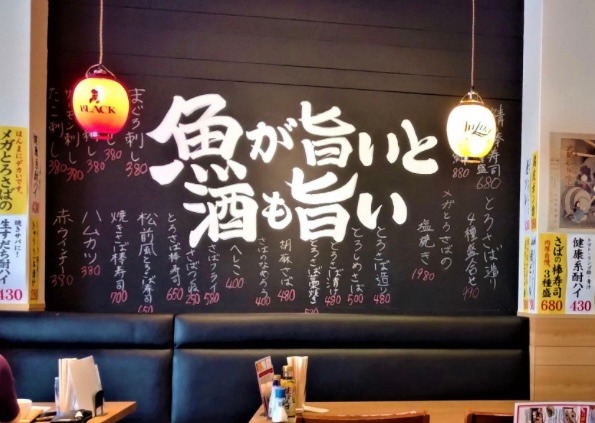 魚が旨いと
酒も旨い
BLACK
まぐろ刺し 380
サーモン刺し 380
たこ刺し 380
ハムカツ 380
赤ウインナー 380
焼きさば棒寿司 700
松前風とろさば寿司 450
とろさば棒寿司 650
さばつくね 250
さばフライ 580
へしこ 400
さばのなめろう 400
胡麻さば 480
とろさば造り 480
とろしめさば
メガとろさばの
塩焼き 1980
とろさば造り
4種盛合せ
680
ほんまにデカいです。
メガとろさばの
焼きサバに!
生すだち酎ハイ
430
健康系酎ハイ
さばの棒寿司
3種盛
680
健康系酎ハイ
430